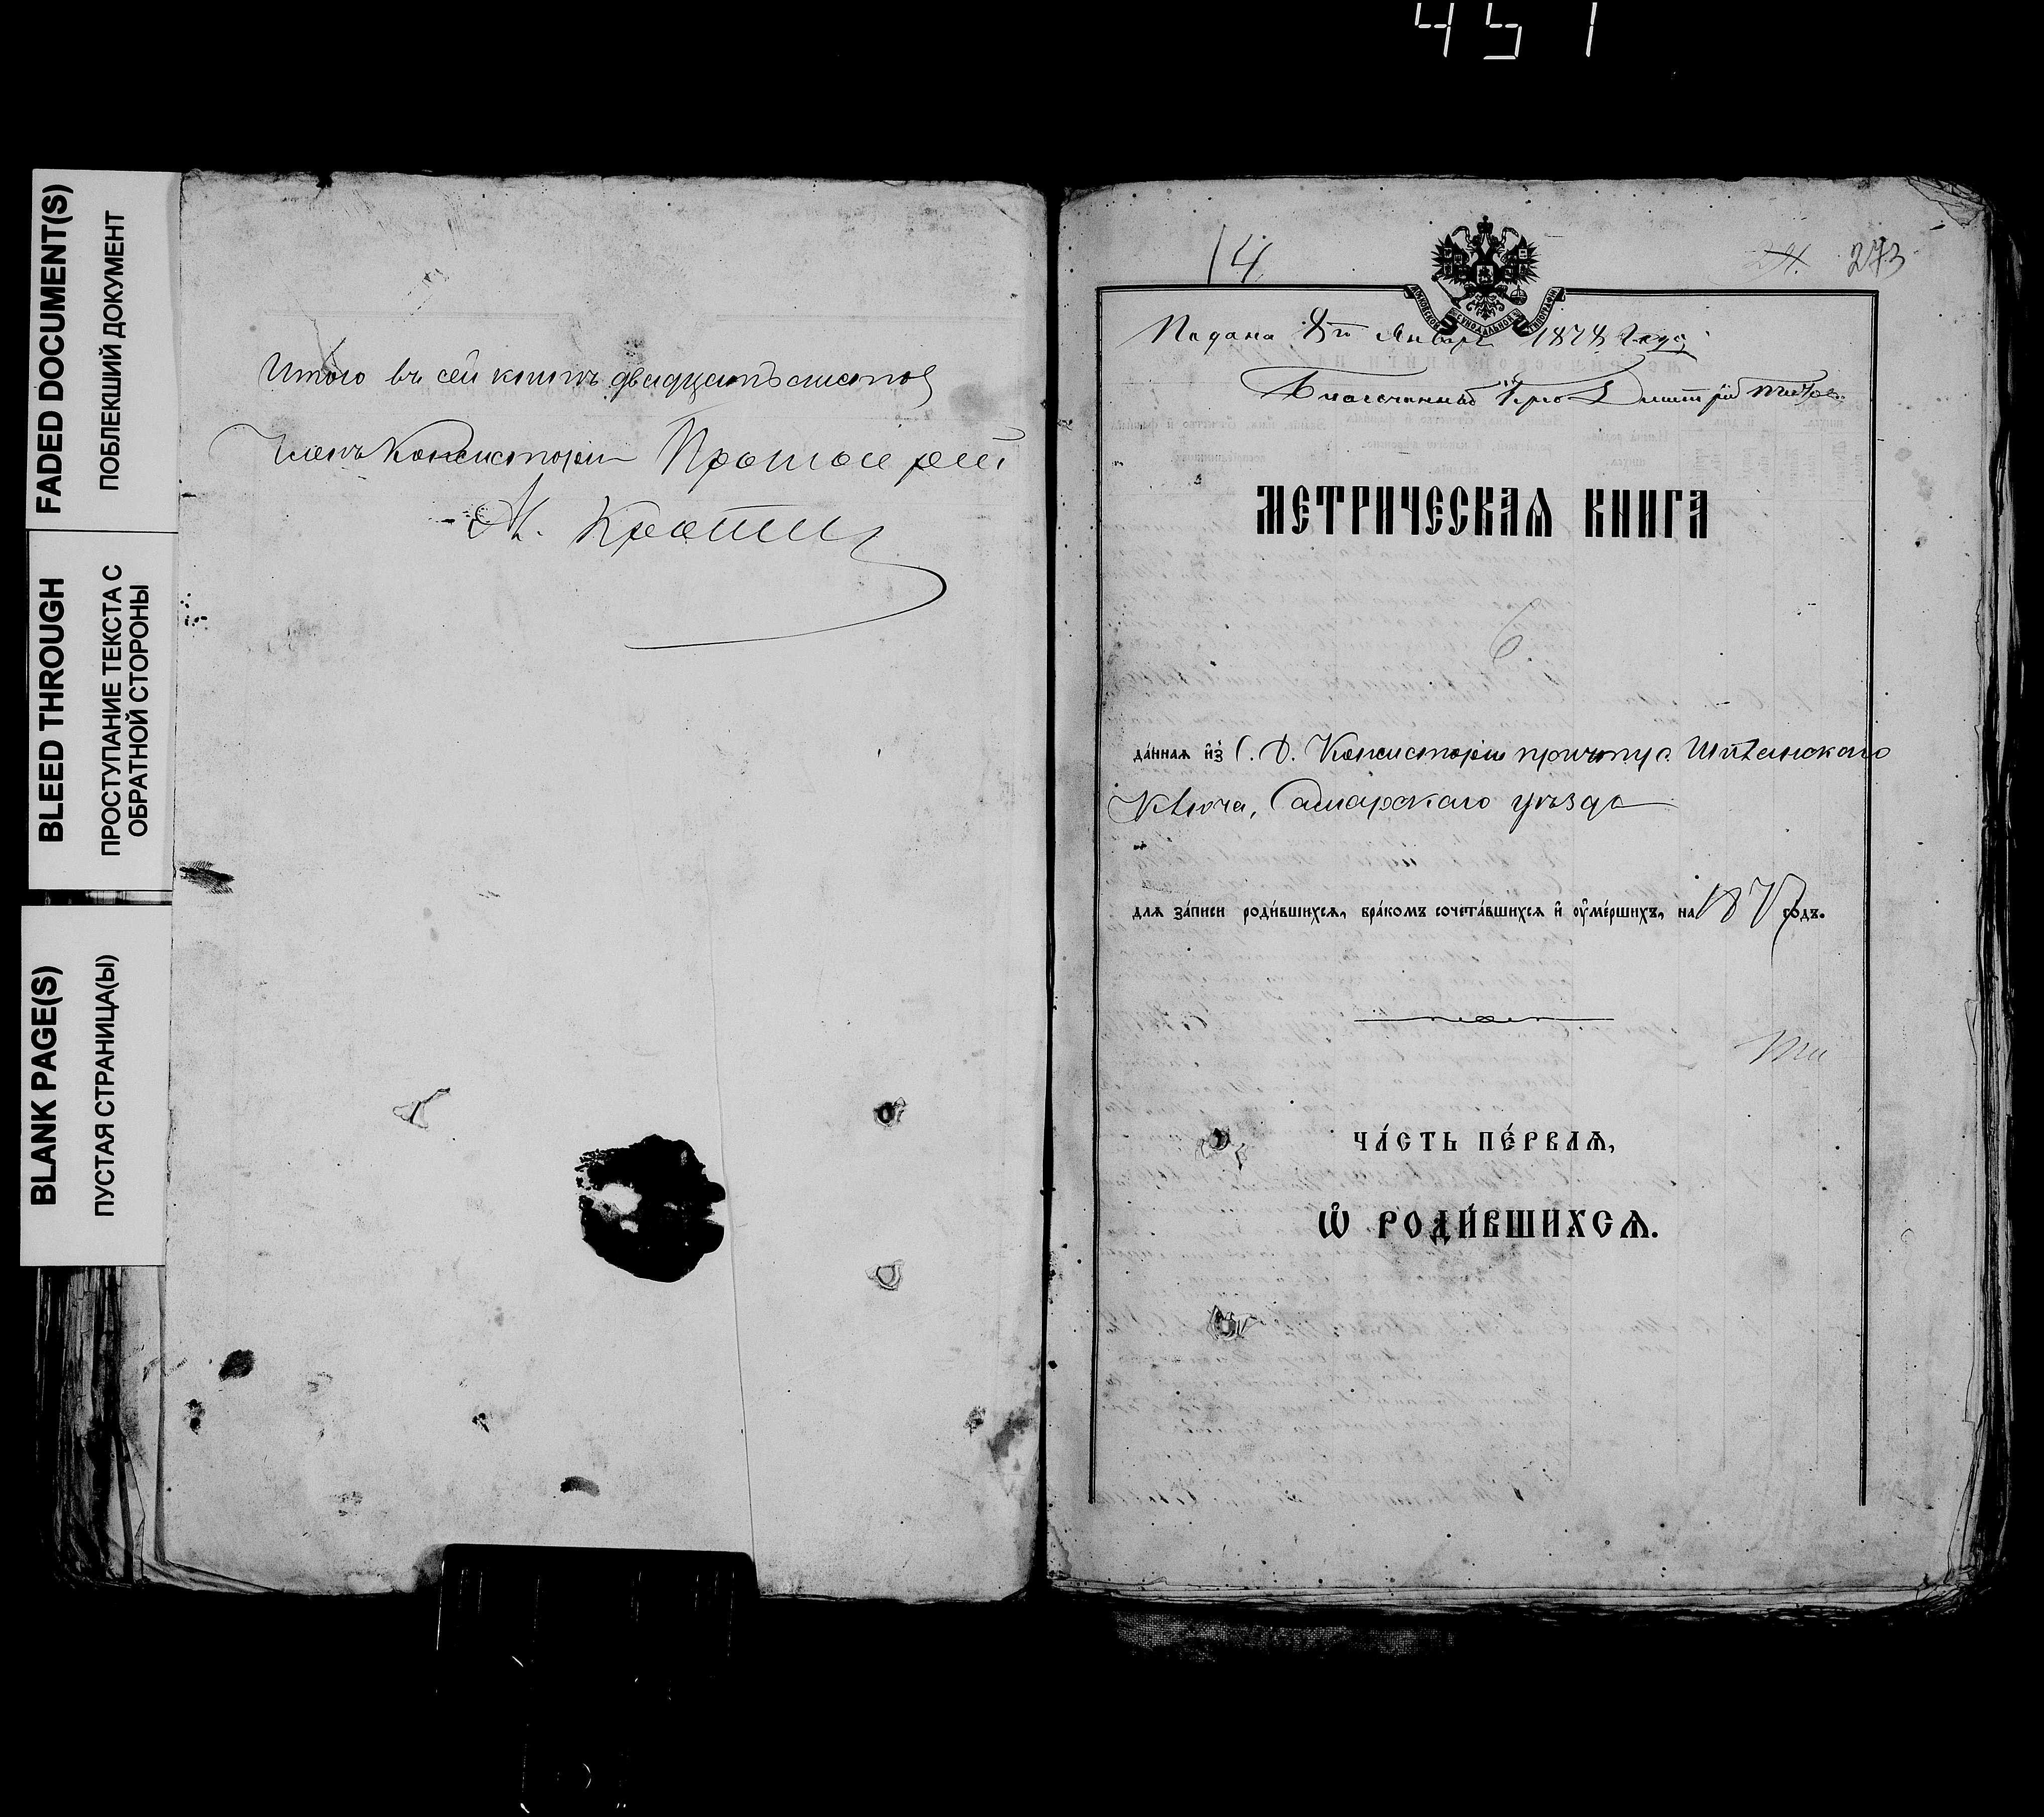 451
FADED DOCUMENT(S)
ПОБЛЕКШИЙ ДОКУМЕНТ
BLEED THROUGH
ПРОСТУПАНИЕ ТЕКСТА С
ОБРАТНОЙ СТОРОНЫ
BLANK PAGE(S)
ПУСТАЯ СТРАНИЦА(Ы)
Итого въ сей книгѣ двадцать листовъ
Членъ Консисторіи Протоіерей
14
24. 273
МОСКОВСКОЙ СѴНОДАЛЬНОЙ ТИПОГРАФІИ
Подана 8го Января 1878 года
Благочинный Іерей Димитрій
МЕТРИЧЕСКАѦ КНИГА
6
да́ннаѧ и҆з̾ С. Д. Консисторіи причту с.
Ключа, Самарскаго уѣзда
длѧ за́писи роди́вшихсѧ, бра́комъ сочета́вшихсѧ и҆ ᲂу҆ме́ршихъ, на 1877 годъ.
ЧА́СТЬ ПЕ́РВАѦ,
Ѡ҆ РОДИ́ВШИХСѦ.